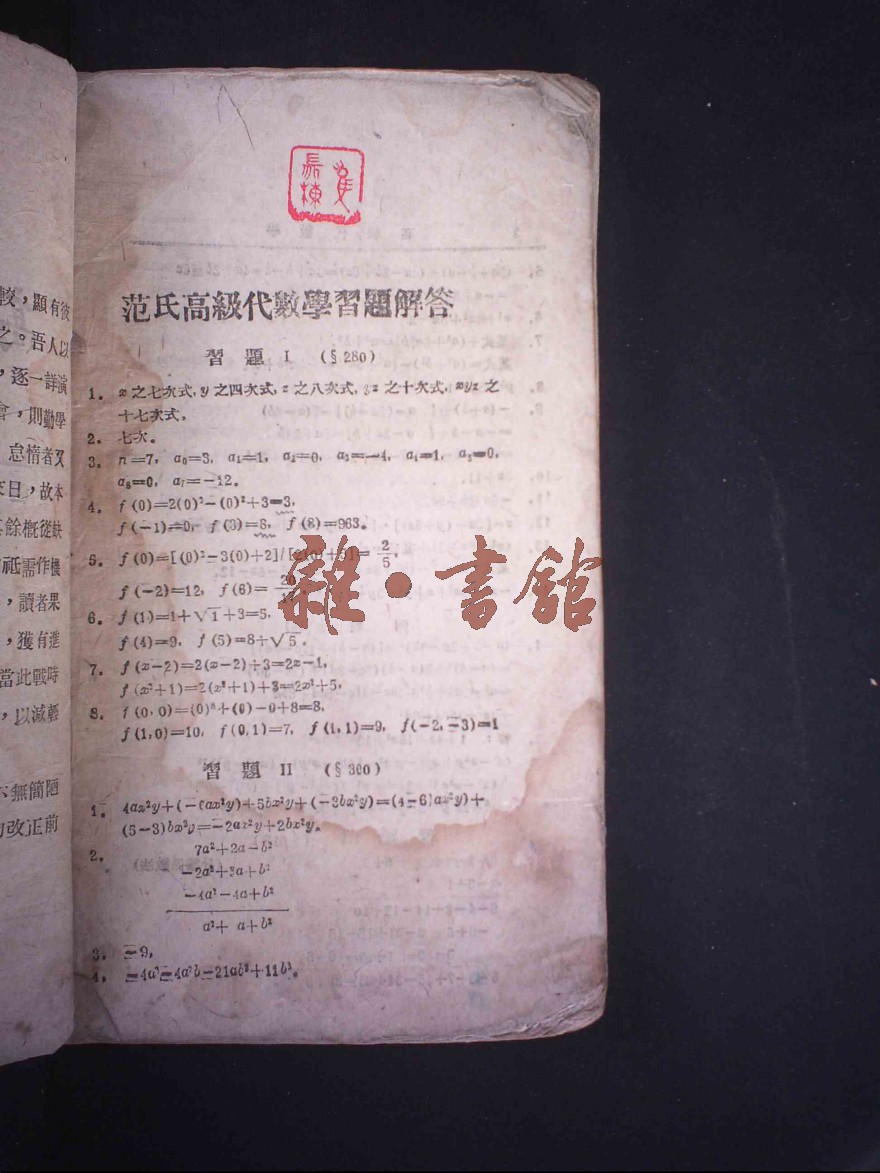 較，顯有彼
之。吾人以
，逐一詳演
會，則勤學
怠惰者又
來日，故本
其餘概從缺
祗需作機
，讀者果
，獲有進
當此戰時
，以減輕
不無簡陋
改正前
范氏高級代數學習題解答
習題 I (§280)
1. x之七次式, y之四次式, z之八次式, yz之十次式, xyz之
十七次式。
2. 七次。
3. n=7, a₀=3, a₁=1, a₂=0, a₃=-4, a₄=1, a₅=0,
a₆=0, a₇=-12.
4. f(0)=2(0)³-(0)²+3=3,
f(-1)=0, f(3)=, f(8)=963。
5. f(0)=[(0)²-3(0)+2]/[2(0)+5]=2/5,
f(-2)=12, f(6)=
6. f(1)=1+√1+3=5,
f(4)=9, f(5)=8+√5.
7. f(x-2)=2(x-2)+3=2x-1,
f(x²+1)=2(x²+1)+3=2x²+5.
8. f(0,0)=(0)+(0)-0+8=8,
f(1,0)=10, f(0,1)=7, f(1,1)=9, f(-2,-3)=1
習題 II (§300)
1. 4ax²y+(-6ax²y)+5bx²y+(-3bx²y)=(4-6)ax²y+
(5-3)bx²y=-2ax²y+2bx²y.
2. 7a²+2a-b²
-2a²+3a+b²
-4a²-4a+b²
a²+ a+b²
3. -9,
4. -4a³-4a²b-21ab²+11b³。
雜·書館